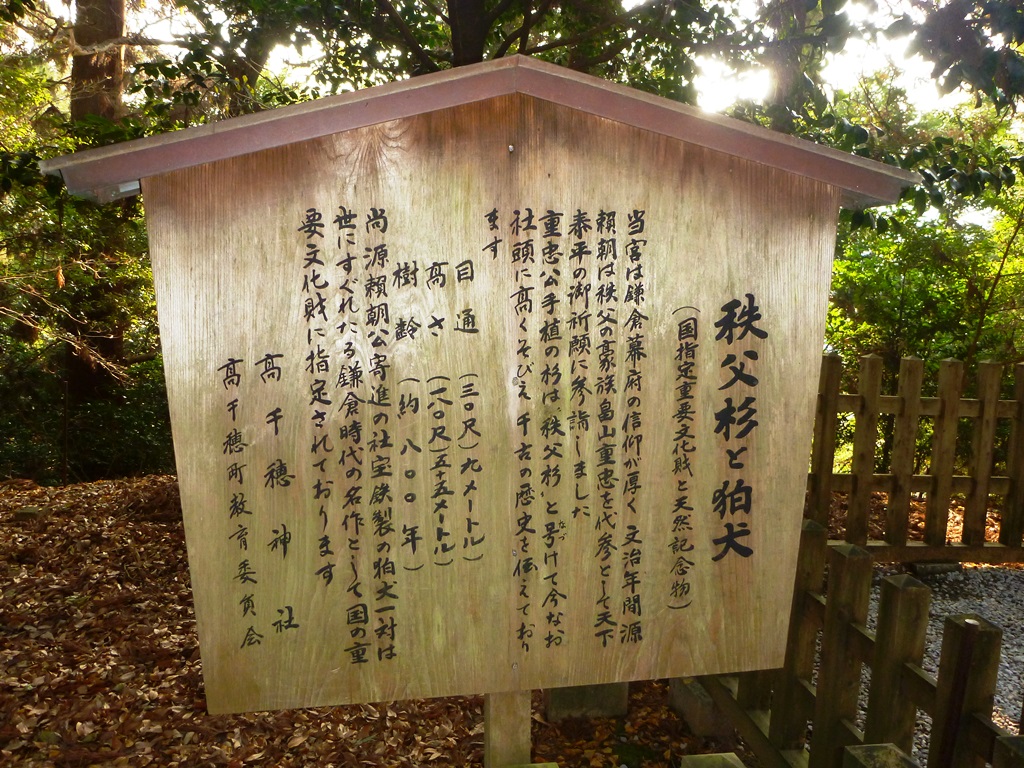 秩父杉と狛犬
（国指定重要文化財と天然記念物）
当宮は鎌倉幕府の信仰が厚く文治年間源
頼朝は秩父の豪族畠山重忠を代参として天下
泰平の御祈願に参詣しました
重忠公手植の杉は、秩父杉、と号けて今なお
なづ
社頭に高くそびえ千古の歴史を伝えており
ます
目通（三〇尺）九メートル）
高さ（一八〇尺）五十五メートル）
樹齢（約八〇〇年）
尚源頼朝公寄進の社宝鉄製の狛犬一対は
世にすぐれたる鎌倉時代の名作として国の重
要文化財に指定されております
高千穂神社
高千穂町教育委員会